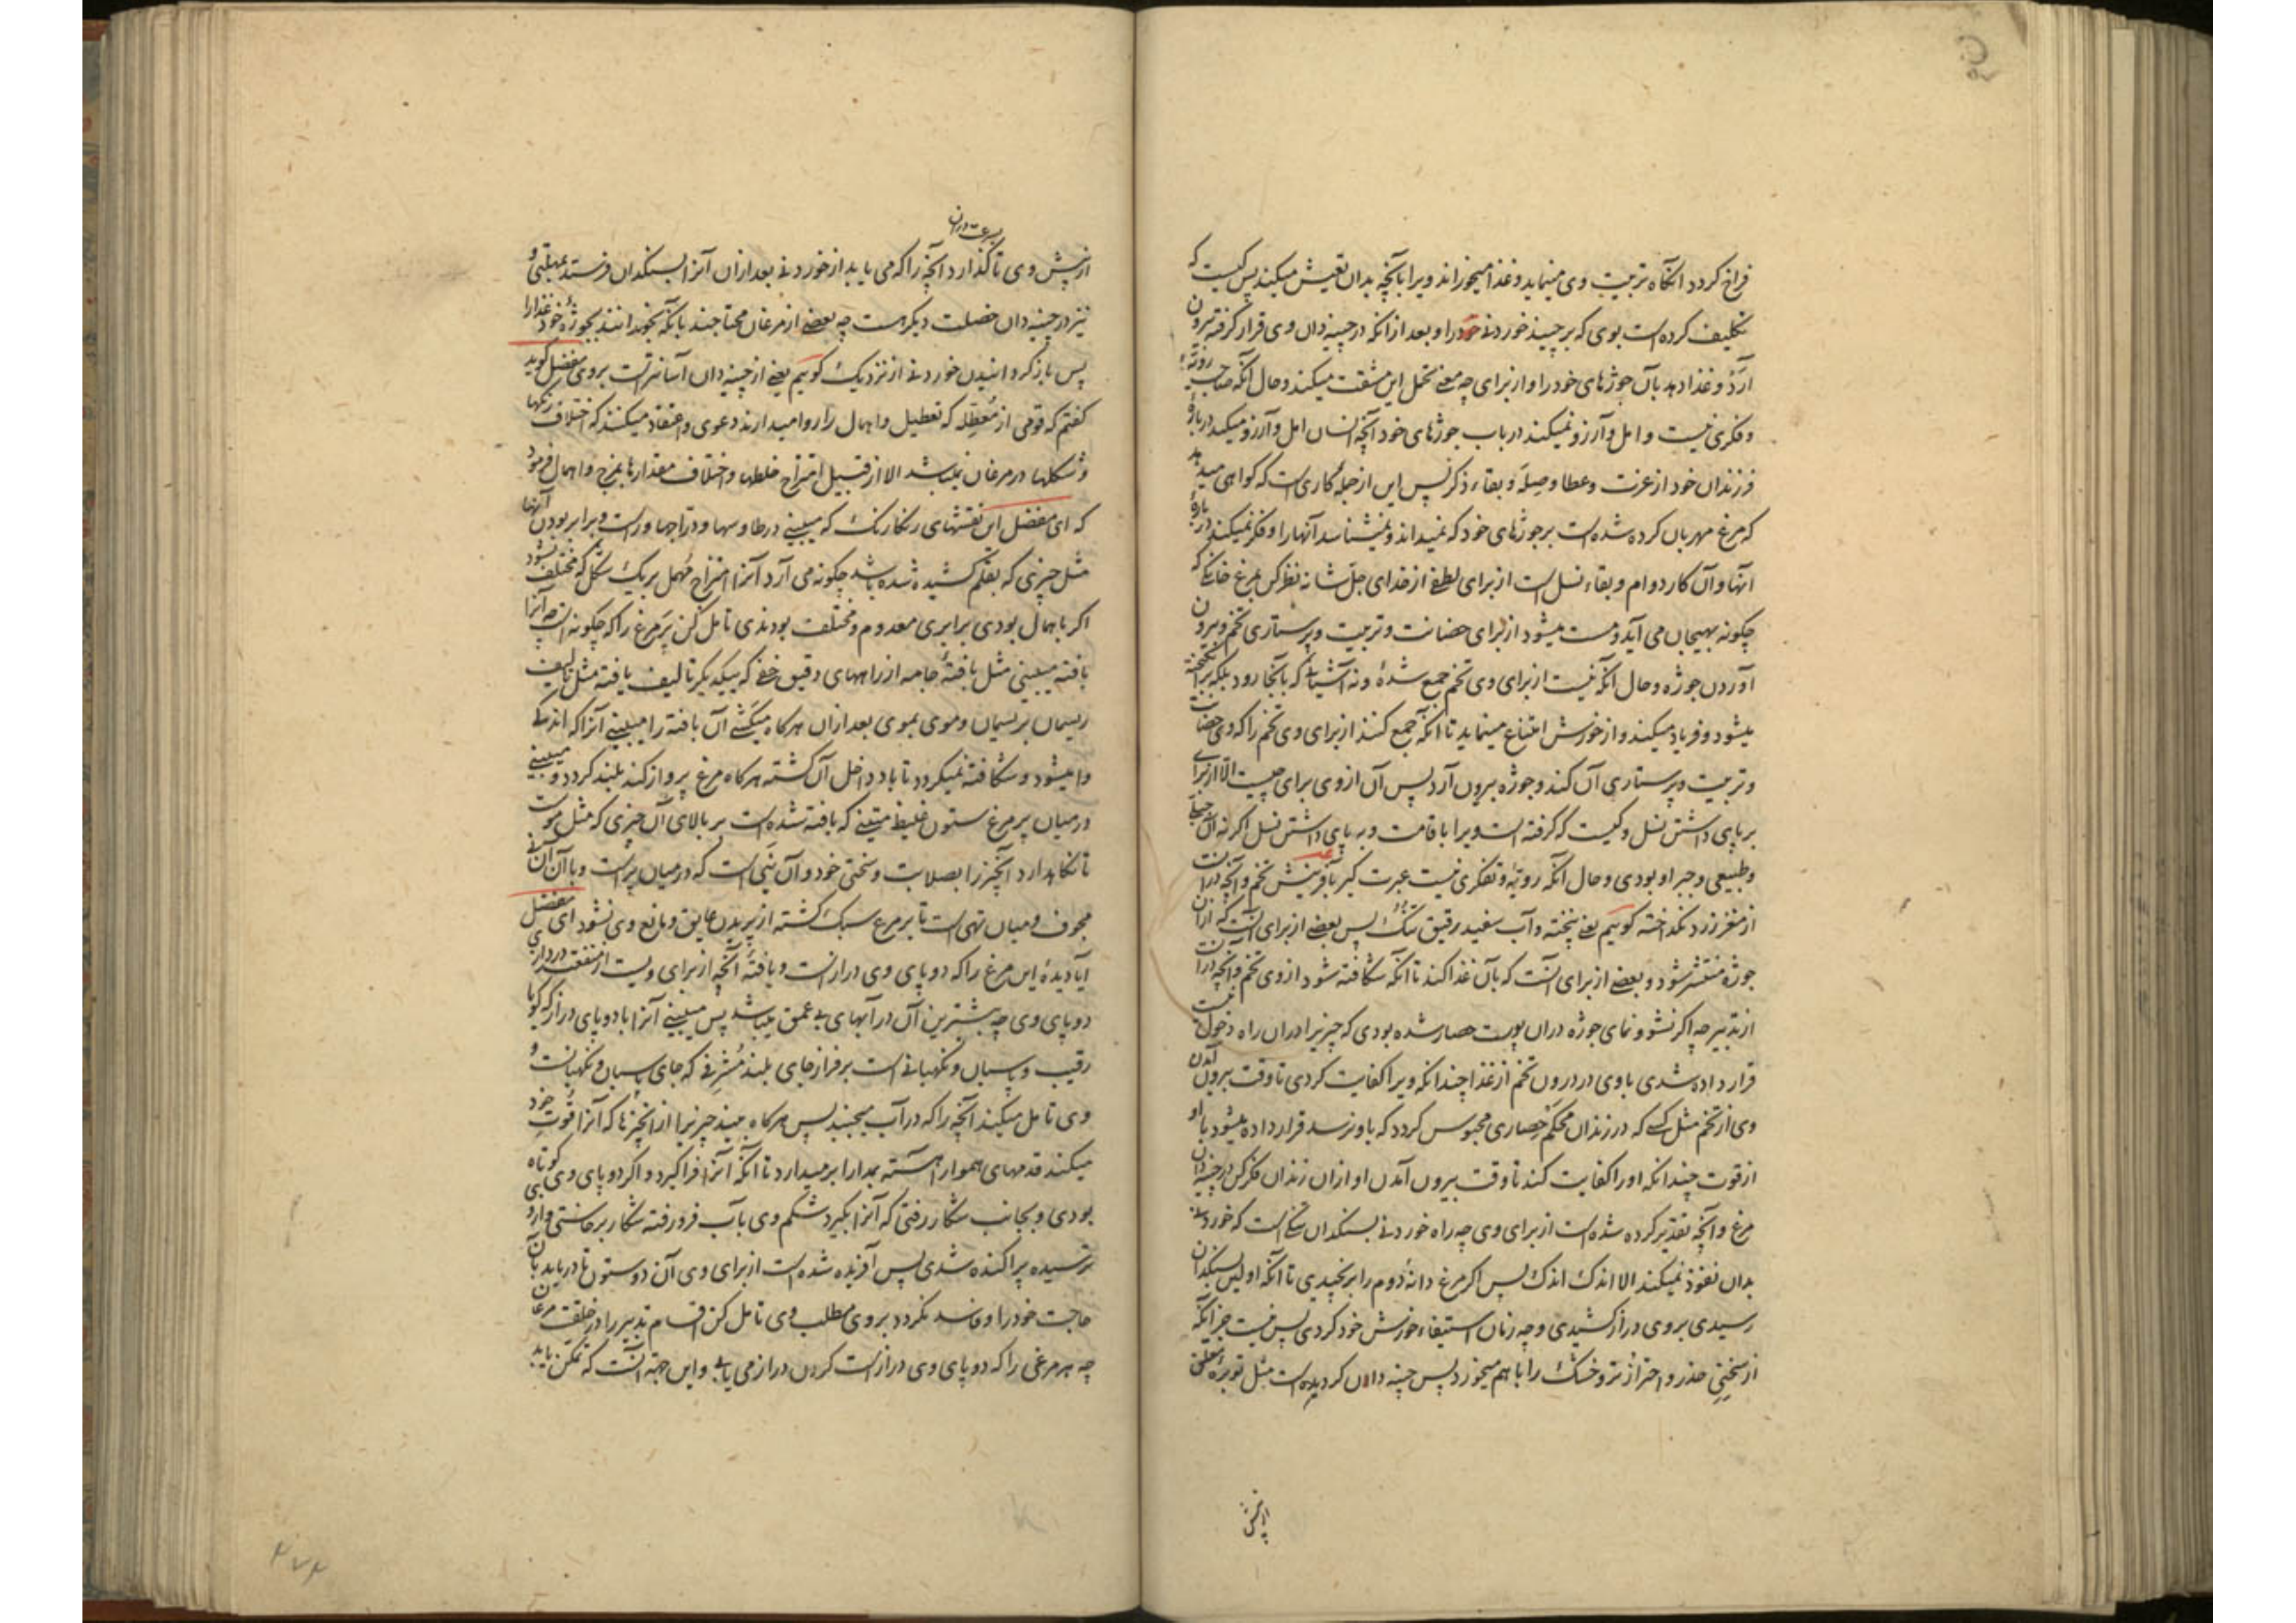 فراخ گردد آنگاه تربیت وی مینماید و غذا میخوراند ویرا بآنچه بدان تعیش میکند پس کیست که
تکلیف کرده است بوی که برچیند خوردنی خود را و بعد از آنکه در چینه دان وی قرار گرفته بیرون
آرد و غذا دهد بآن جوژهای خود را و از برای چه معنی تحمل این مشقت میکند و حال آنکه صاحب رویّه
و فکری نیست و امل و آرزو نمیکند در باب جوژهای خود آنچه انسان امل و آرزو میکند در باره
فرزندان خود از عزت و عطا و صله و بقاء ذکر پس این از جمله کاری است که گواهی میدهد
که مرغ مهربان کرده شده است بر جوژهای خود که نمیداند و نمیشناسد آنها را و فکر نمیکند در باره
آنها و آن کار دوام و بقاء نسل است از برای لطفی از خدای جلّ شانه نظر کن بمرغ خانگی که
چگونه بهیجان می آید و مست میشود از برای حضانت و تربیت و پرستاری تخم و بیرون
آوردن جوژه و حال آنکه نیست از برای وی تخم جمع شدهٔ و نه آشیانی که بآنجا رود بلکه برانگیخته
میشود و فریاد میکند و از خورش امتناع مینماید تا آنکه جمع کنند از برای وی تخم را که وی حضانت
و تربیت و پرستاری آن کند و جوژه بیرون آرد پس آن از وی برای چیست الا از برای
بر پای داشتن نسل و کیست که گرفته است ویرا باقامت و به پای داشتن نسل اگر نه آن جبلّی
و طبیعی و جبر او بودی و حال آنکه رویّه و تفکری نیست عبرت گیر بآفرینش تخم و آنچه در آنست
از مغز زرد نگداخته گوییم یعنی پخته و آب سفید رقیق تنک پس بعضی از برای آنست که از آن
جوژه منتشر شود و بعضی از برای آنست که بآن غذا کند تا آنکه شکافته شود از وی تخم و آنچه در آنست
از تدبیر چه اگر نشو و نمای جوژه در آن پوست حصار شده بودی که چیزیرا در آن راه دخول نیست
قرار داده شدی با وی در درون تخم از غذا چندانکه ویرا کفایت کردی تا وقت بیرون آمدن
وی از تخم مثل کسی که در زندان محکم حصاری محبوس گردد که باو نرسد قرار داده میشود با او
از قوت چندانکه او را کفایت کند تا وقت بیرون آمدن او از آن زندان فکر کن در چینه دان
مرغ و آنچه تقدیر کرده شده است از برای وی چه راه خوردنی بسنگدان تنگی است که خوردنی
بدان نفوذ نمیکند الا اندک اندک پس اگر مرغ دانهٔ دوم را برنچیدی تا آنکه اولین بسنگدان
رسیدی بروی دراز کشیدی و چه زمان استیفاء خورش خود کردی پس نیست جز آنکه
از سختی حذر و احتراز تر و خشک را با هم میخورد پس چینه دان گردیده است مثل توبرهٔ معلق
از پیش
بسرعت در آن
از پیش وی تا گذارد آنچه را که می یابد از خوردنی بعد از آن آنرا بسنگدان فرستد بمهلتی و
نیز در چینه دان خصلت دیگر هست چه بعضی از مرغان محتاجند بآنکه بخورانند بجوژه خود غذا را
پس باز گردانیدن خوردنی از نزدیک گوییم یعنی از چینه دان آسانتر است بروی مفضل گوید
گفتم که قومی از معطّله که تعطیل و اهمال را روا میدارند دعوی و اعتقاد میکنند که اختلاف رنگها
و شکلها در مرغان نمیباشد الا از قبیل امتزاج خلطها و اختلاف مقدارها بمزج و اهمال فرمود
که ای مفضل این نقشهای رنگارنگ که میبینی در طاوسها و درّاجها و راست و برابر بودن آنها
مثل چیزی که بقلم کشیده شده باشد چگونه می آرد آنرا امتزاج مُهمل بر یک شکل که مختلف نشود
اگر باهمال بودی برابری معدوم و مختلف بودندی تامل کن پر مرغ را که چگونه است چه آنرا
بافته میبینی مثل بافتهٔ جامه از راههای دقیق خفی که بیکدیگر تالیف یافته مثل تالیف
ریسمان بریسمان و موی بموی بعد از آن هرگاه میکشی آن بافته را میبینی آنرا که اندکی
وا میشود و شکافته نمیگردد تا باد داخل آن گشته هرگاه مرغ پرواز کند بلند گردد و میبینی
در میان پر مرغ ستون غلیظ متینی که بافته شده است بر بالای آن چیزی که مثل موست
تا نگاهدارد آنچیز را بصلابت و سختی خود و آن نیی است که در میان پر است و با آن آن نی
مجوف و میان تهی است تا بر مرغ سبک گشته از پریدن عایق و مانع وی نشود ای مفضل
آیا دیدهٔ این مرغ را که دو پای وی دراز است و یافتهٔ آنچه از برای ویست از منفعت در درازی
دو پای وی چه بیشترین آن در آبهای بی عمق میباشد پس میبینی آنرا با دو پای دراز که گویا
رقیب و پاسبان و نگهبانی است بر فراز جای بلند مُشرفی که جای پاسبان و نگهبانست و
وی تامل میکند آنچه را که در آب میجنبد پس هرگاه بیند چیزیرا از آنچیزها که آنرا قوت خود
میکند قدمهای هموار آهسته بمدارا برمیدارد تا آنکه آنرا فراگیرد و اگر دو پای وی کوتاه
بودی و بجانب شکار رفتی که آنرا بگیرد شکم وی بآب فرو رفته شکار برخاستی و از وی
ترسیده پراکنده شدی پس آفریده شده است از برای وی آن دو ستون تا دریابد بآن
حاجت خود را و فاسد نگردد بروی مطلب وی تامل کن اقسام تدبیر را در خلقت مرغان
چه هر مرغی را که دو پای وی دراز است گردن دراز می یابی و این جهة آنست که تمکن یابد
۴۷۴